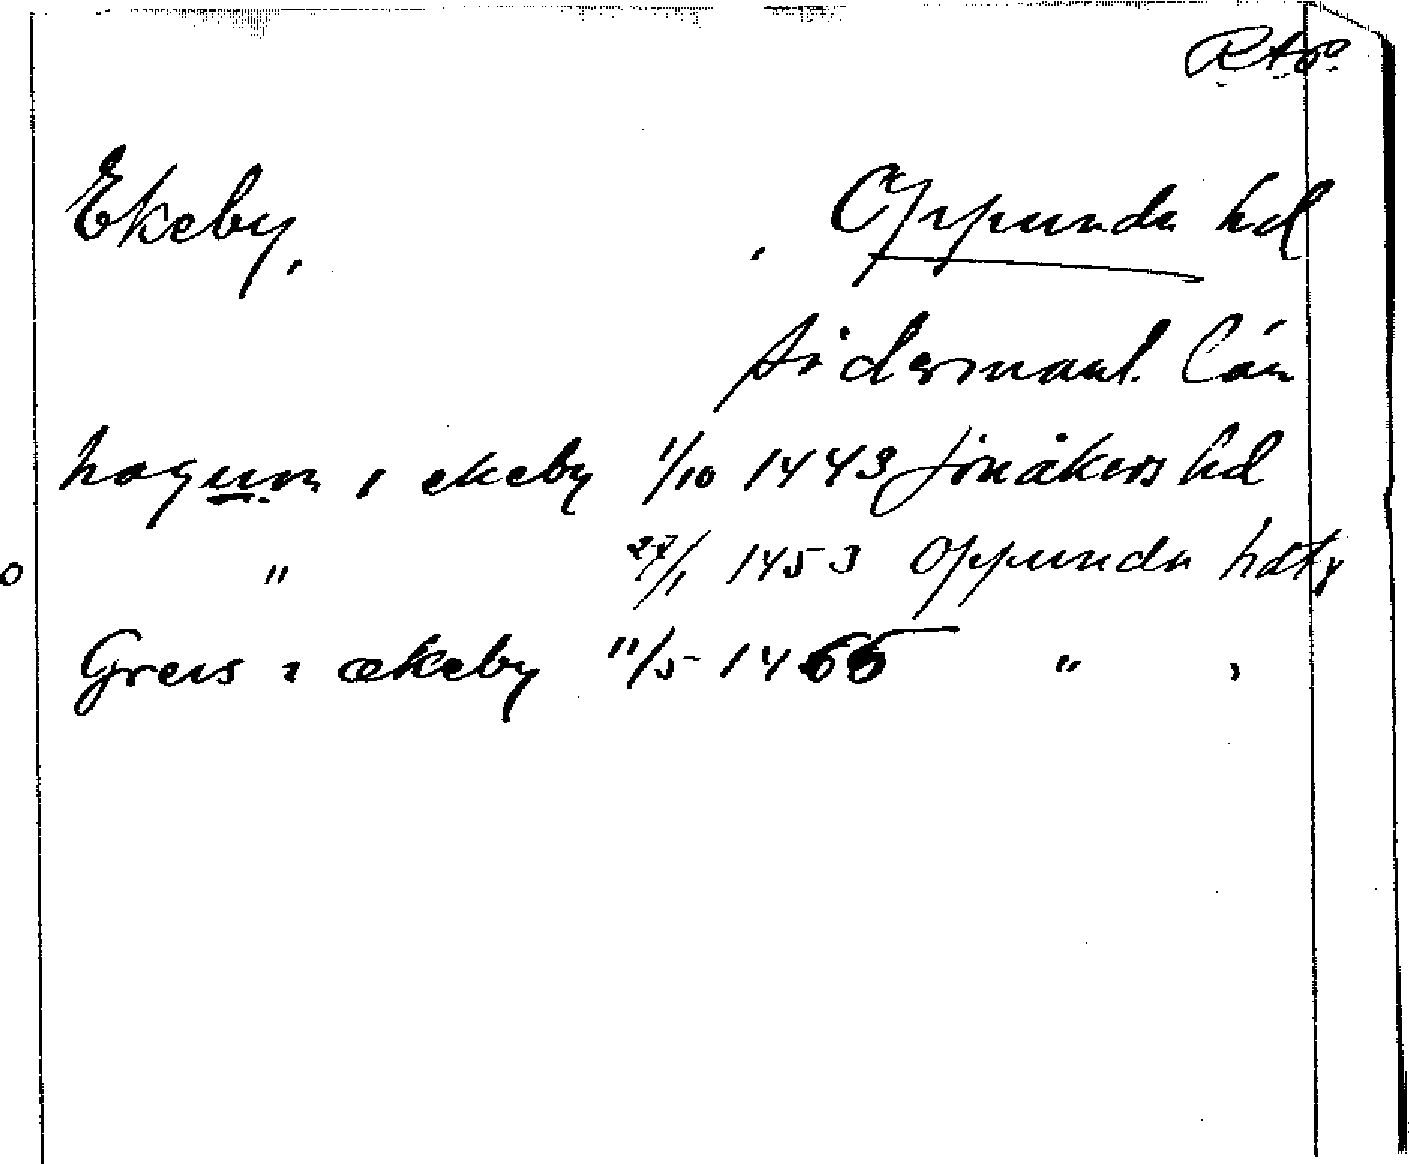 RAP.
Ekeby, Oppunda hd
Södermanl. län
haqun i ekeby 1/10 1443 Jönåkers hd
" 27/1 1453 Oppunda hd
Greis i ækeby 11/5 1466 " "